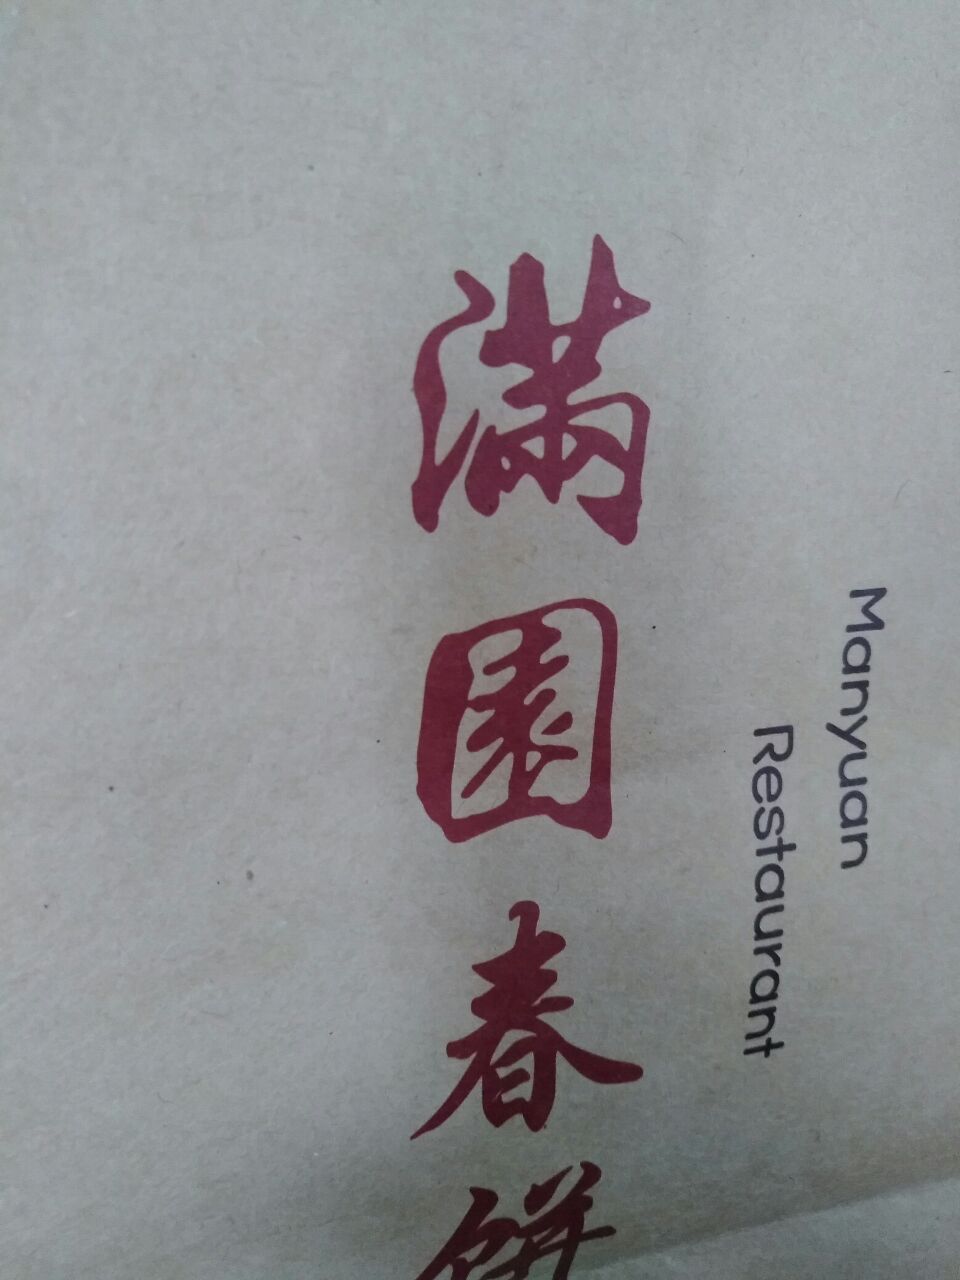 满园春饼
Manyuan
Restaurant